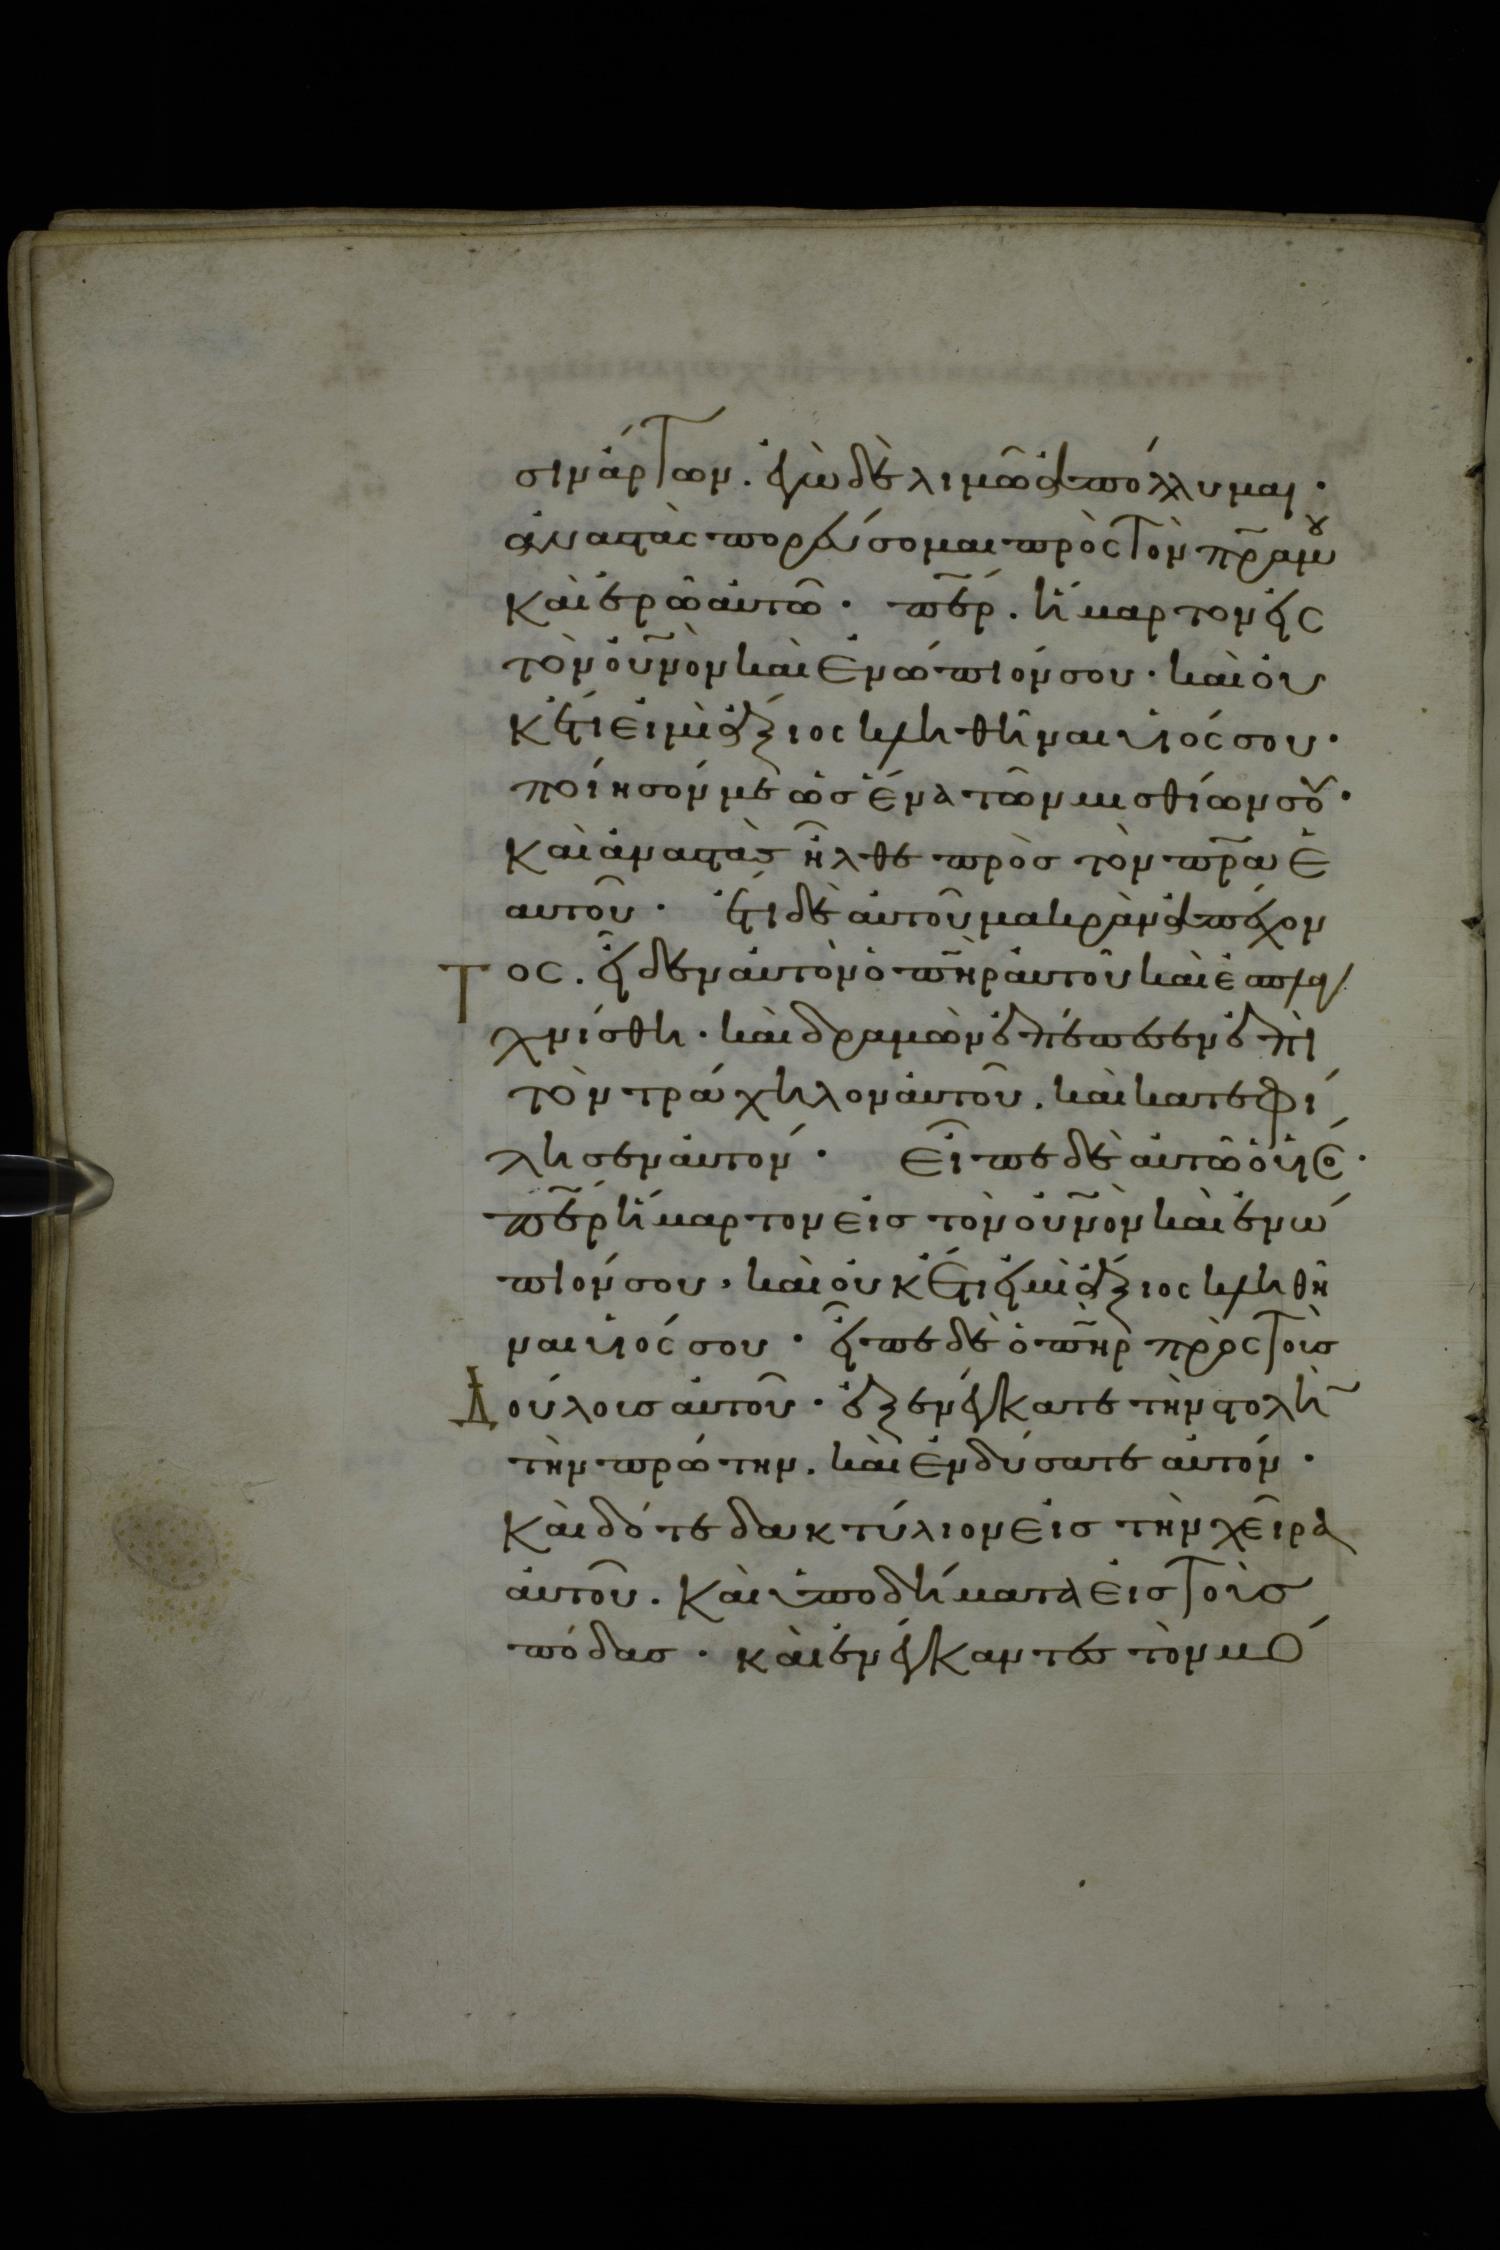 σιν ἄρτων. ἐγὼ δὲ λιμῶ ἀπόλλυμαι·
ἀναστὰς πορεύσομαι πρὸς τὸν πρ̅α μου
καὶ ἐρῶ αὐτῶ· πε̅ρ. ἥμαρτον εἰς
τὸν οὐ̅νὸν καὶ ἐνώπιόν σου· καὶ οὐ
κέτι εἰμὶ ἄξιος κληθῆναι υἱός σου·
ποίησόν με ὡς ἕνα τῶν μισθίων σου·
καὶ ἀναστὰς ἦλθε πρὸς τὸν πρ̅α ἑ
αυτοῦ· ἔτι δὲ αὐτοῦ μακρὰν ἀπέχον
τος. εἶδεν αὐτὸν ὁ πη̅ρ αὐτοῦ καὶ ἐσπλα
χνίσθη· καὶ δραμὼν ἐπέπεσεν ἐπὶ
τὸν τράχηλον αὐτοῦ. καὶ κατεφί
λησεν αὐτόν· εἶπε δὲ αὐτῶ ὁ υἱός·
πε̅ρ ἥμαρτον εἰς τὸν οὐ̅νὸν καὶ ἐνώ
πιόν σου, καὶ οὐκέτι εἰμὶ ἄξιος κληθῆ
ναι υἱός σου· εἶπε δὲ ὁ πη̅ρ πρὸς τοὺς
δούλους αὐτοῦ· ἐξενέγκατε τὴν στολὴ̅
τὴν πρώτην. καὶ ἐνδύσατε αὐτόν·
καὶ δότε δακτύλιον εἰς τὴν χεῖρα
αὐτοῦ. καὶ ὑποδήματα εἰς τοὺς
πόδας· καὶ ἐνέγκαντες τὸν μό